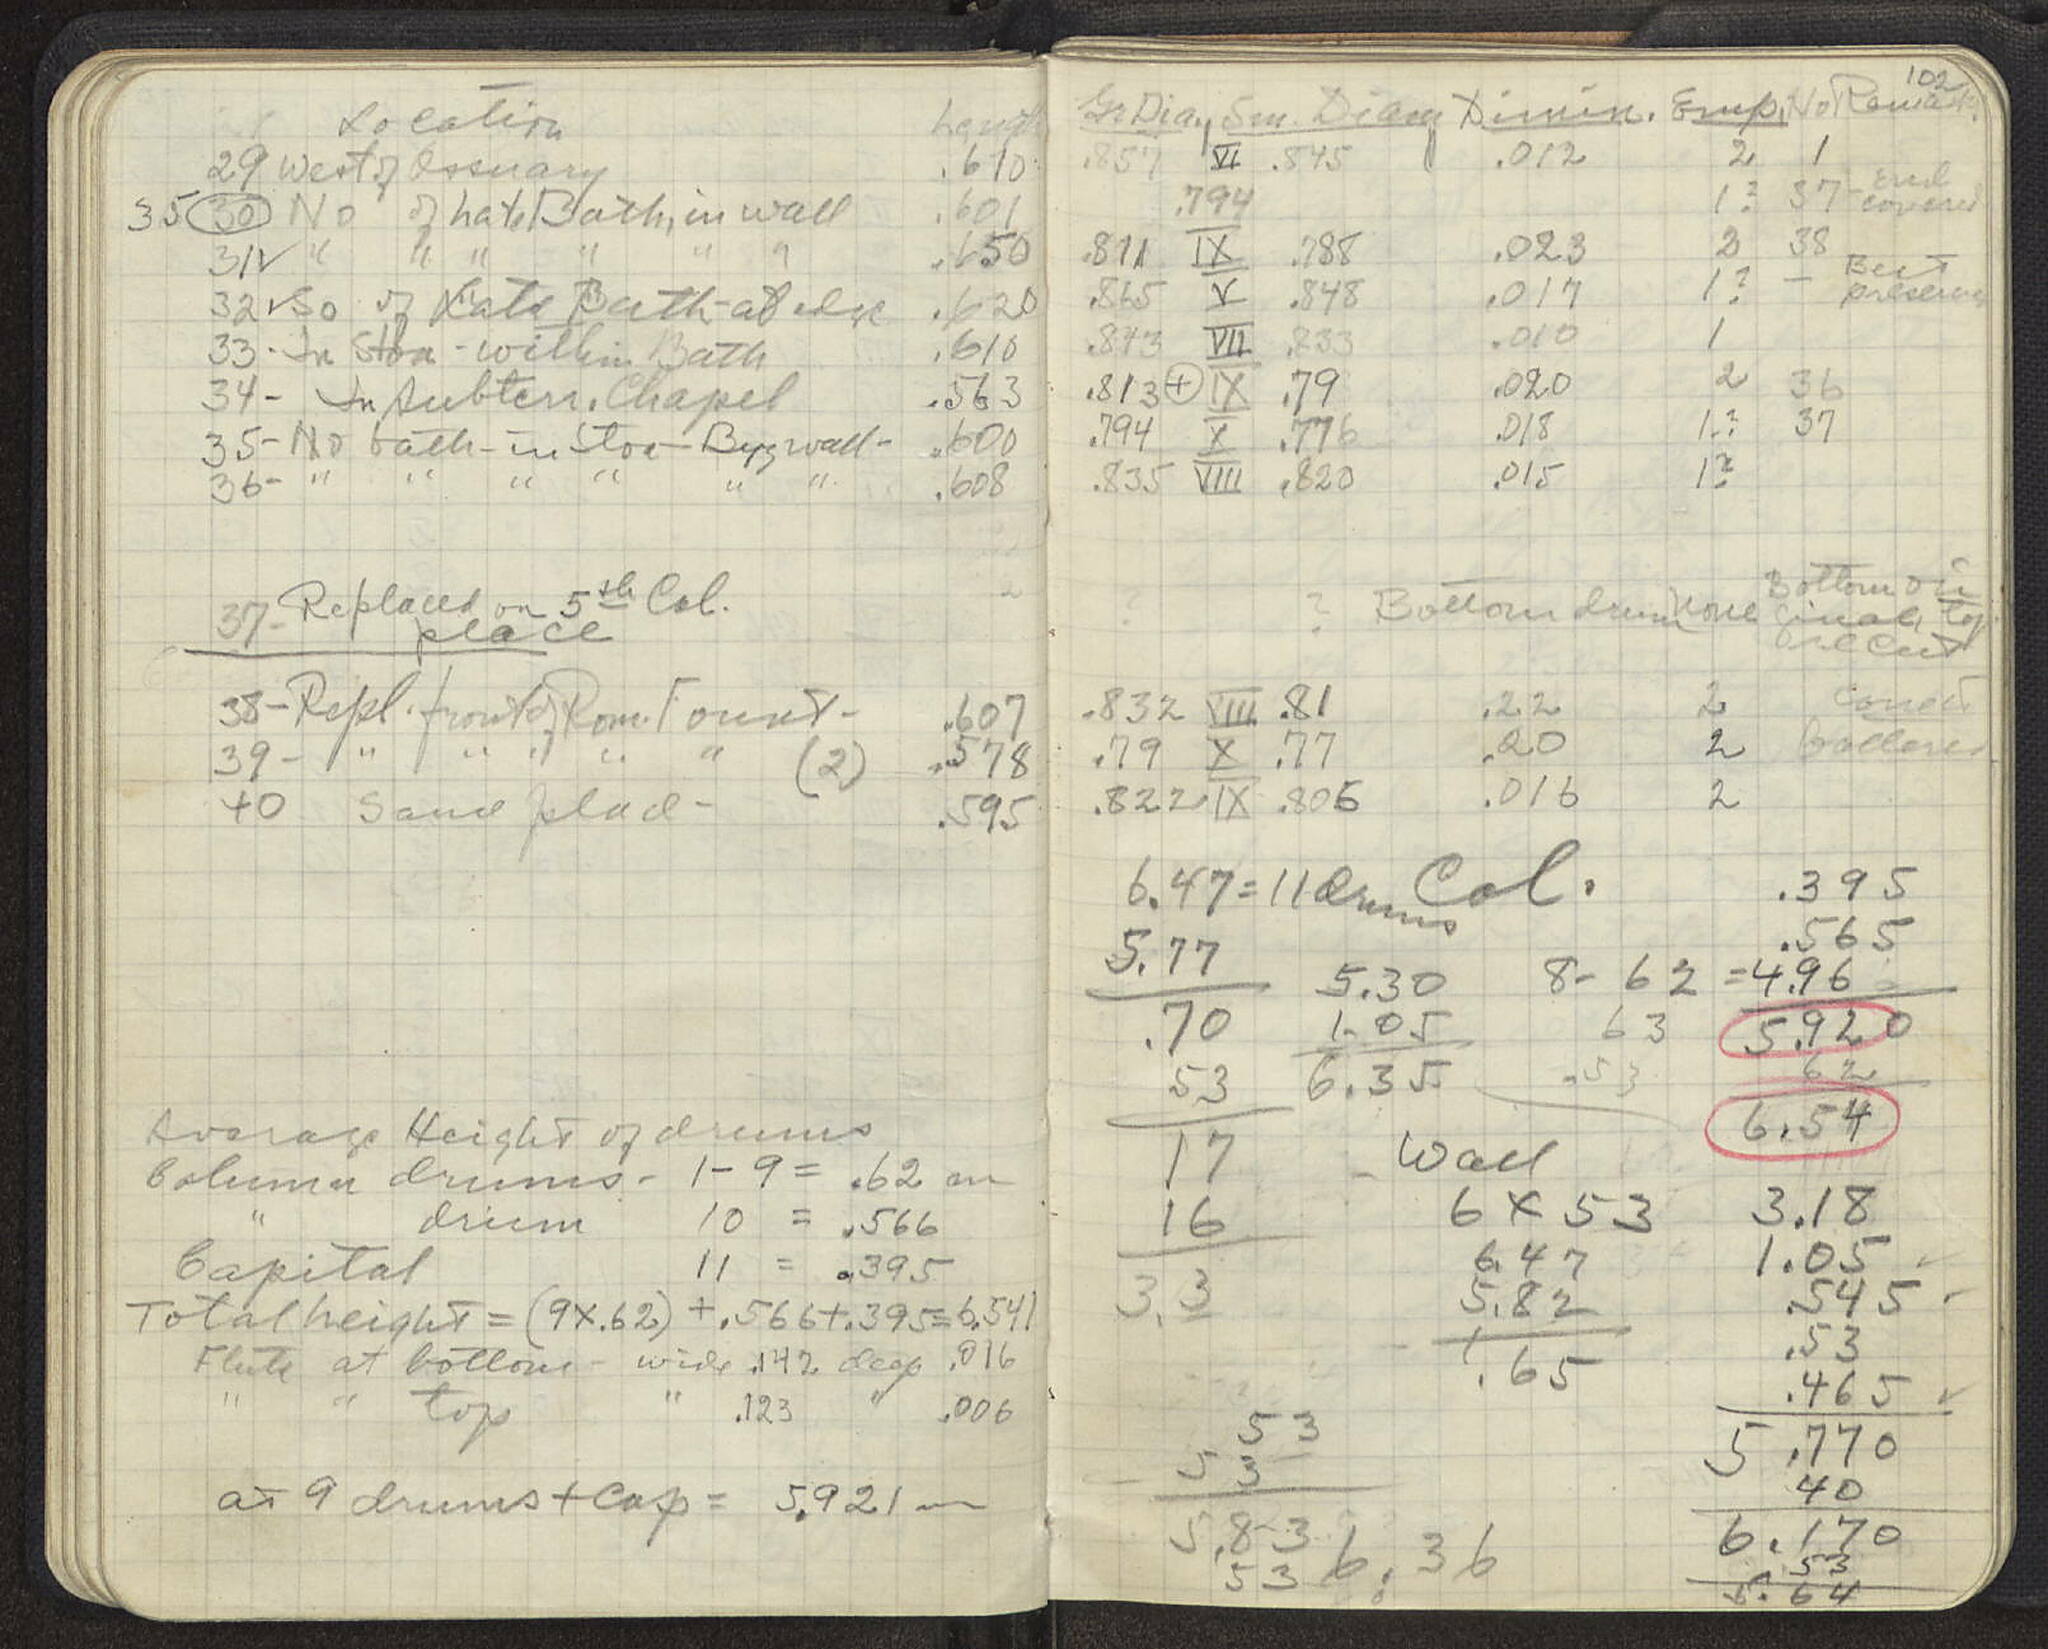 Location Length
29 West of Ossuary .610
35 30 No of Late Bath, in wall .601
31✓ " " " " " " .650
32✓ So of Late Bath-at edge .620
33- In Stoa - within Bath .610
34- In Subterr. Chapel .563
35- No bath - in Stoa - Byz wall - .600
36- " " " " " " .608
37- Replaced on 5th Col.
place
38- Repl. front of Rom. Fount - .607
39- " " " " " (2) .578
40 Same place - .595
Average Height of drums
Column drums - 1-9 = .62 m
" drum 10 = .566
Capital 11 = .395
Total height = (9x.62) + .566+.395=6.541
Flute at bottom - wide .142 deep .016
" " top " .123 " .006
at 9 drums + Cap = 5.921 m
102
Gr Dia, Sm. Diam Dimin. Emp. No Remarks
.857 VI .845 .012 2 1
.794 1? 37 - end
covered
.811 IX .788 .023 2 38
.865 V .848 .017 1? - Best
preserved
.843 VII .833 .010 1
.813 + IX .79 .020 2 36
.794 X .776 .018 1.? 37
.835 VIII .820 .015 1?
? ? Bottom drum none Bottom ori
ginal, top
recut
.832 VIII .81 .22 2
.79 X .77 .20 2 battered
.822 IX .806 .016 2
6.47 = 11 drums Col. .395
5.77 .565
5.30 8- 62 = 4.96
.70 1.05 63 5.920
53 6.35 .53 62
6.54
17 Wall
16 6 x 53 3.18
6.47 1.05 ✓
3.3 5.82 .545 ✓
.53
.65 .465 ✓
53 5.770
53 40
5.83 6.36 6.170
53 .53
5.64